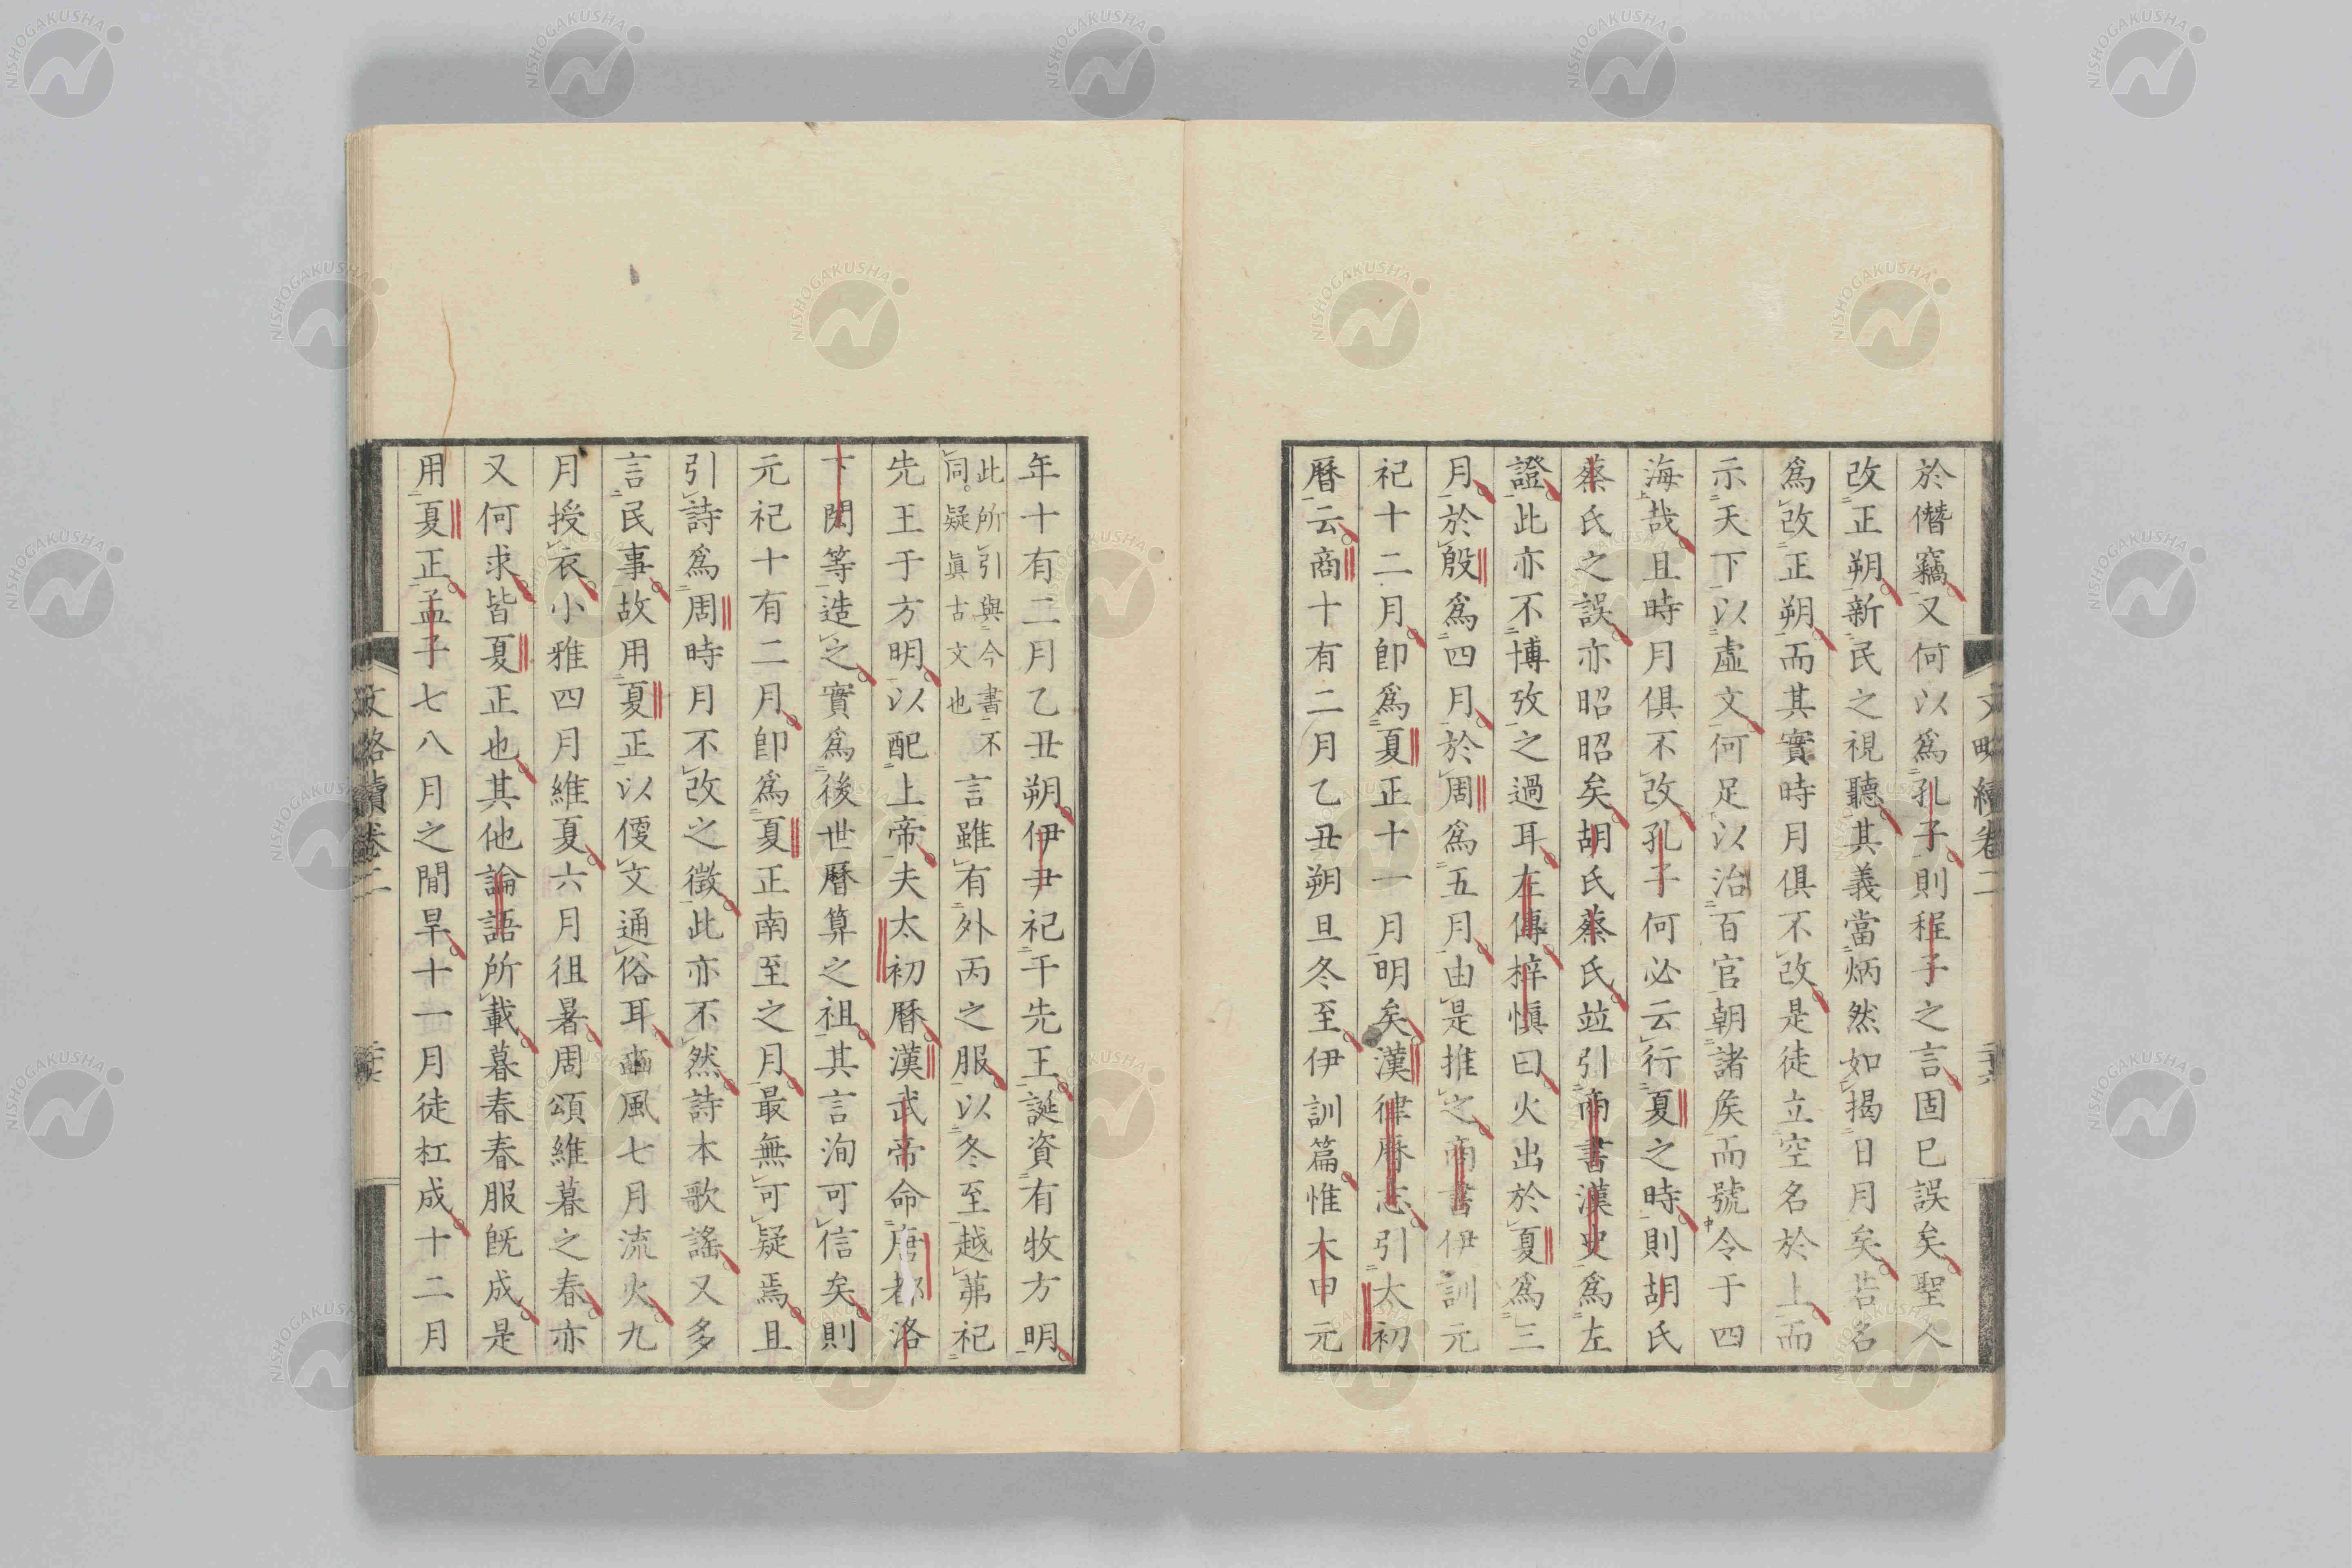 於僭竊又何以爲孔子則程子之言固已誤矣聖人
改正朔新民之視聽其義當炳然如揭日月矣若名
爲改正朔而其實時月俱不改是徒立空名於上而
示天下以虛文何足以治百官朝諸矦而號令于四
海哉且時月俱不改孔子何必云行夏之時則胡氏
蔡氏之誤亦昭昭矣胡氏蔡氏竝引商書漢史爲左
證此亦不博攷之過耳左傳梓愼曰火出於夏爲三
月於殷爲四月於周爲五月由是推之商書伊訓元
祀十二月卽爲夏正十一月明矣漢律曆志引太初
曆云商十有二月乙丑朔旦冬至伊訓篇惟太甲元
年十有二月乙丑朔伊尹祀于先王誕資有牧方明
此所引與今書不
同疑眞古文也
言雖有外丙之服以冬至越茀祀
先王于方明以配上帝夫太初曆漢武帝命唐都洛
下閎等造之實爲後世曆算之祖其言洵可信矣則
元祀十有二月卽爲夏正南至之月最無可疑焉且
引詩爲周時月不改之徵此亦不然詩本歌謠又多
言民事故用夏正以便文通俗耳豳風七月流火九
月授衣小雅四月維夏六月徂暑周頌維暮之春亦
又何求皆夏正也其他論語所載暮春春服旣成是
用夏正孟子七八月之間旱十一月徒杠成十二月
文略續卷二